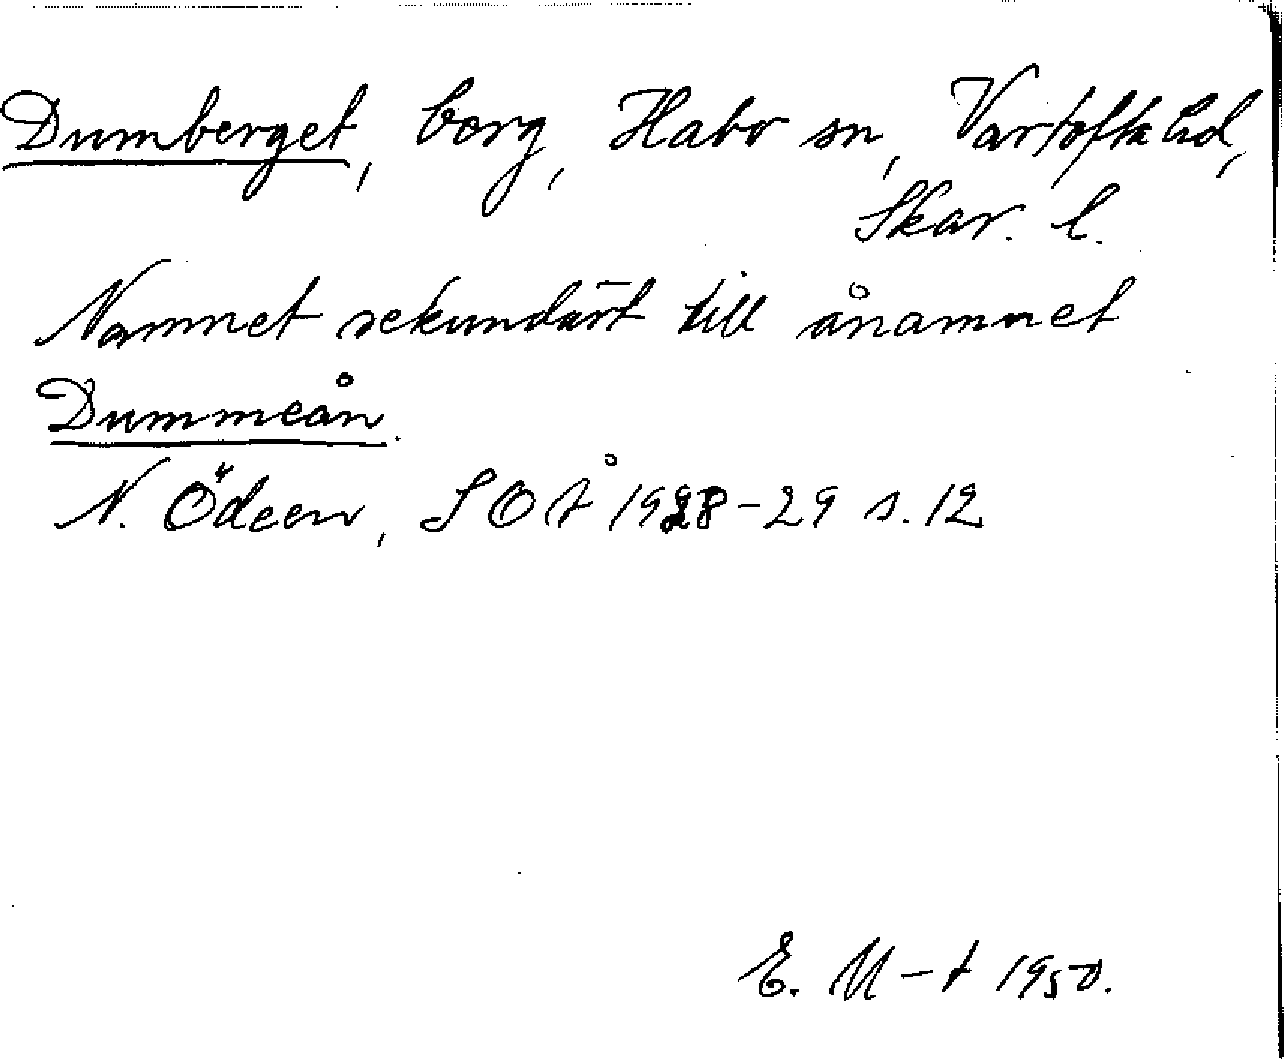 Dumberget, borg, Habo sn, Vartofta hd,
Skar. l.
Namnet sekundärt till ånamnet
Dummeån.
N. Ödeen, SOÅ 1928-29 s. 12
E. M-t 1950.